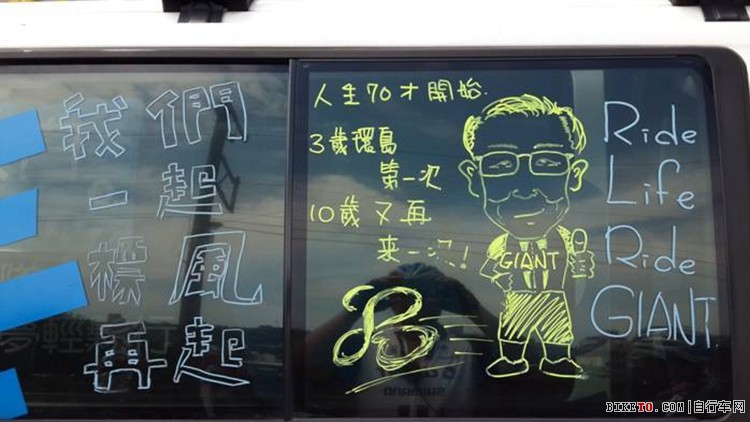 我們
一起
標風
再起
人生70才開始.
3歲環島
第一次
10歲又再
來一次!
GIANT
Ride
Life
Ride
GIANT.
BIKETO.COM|自行车网